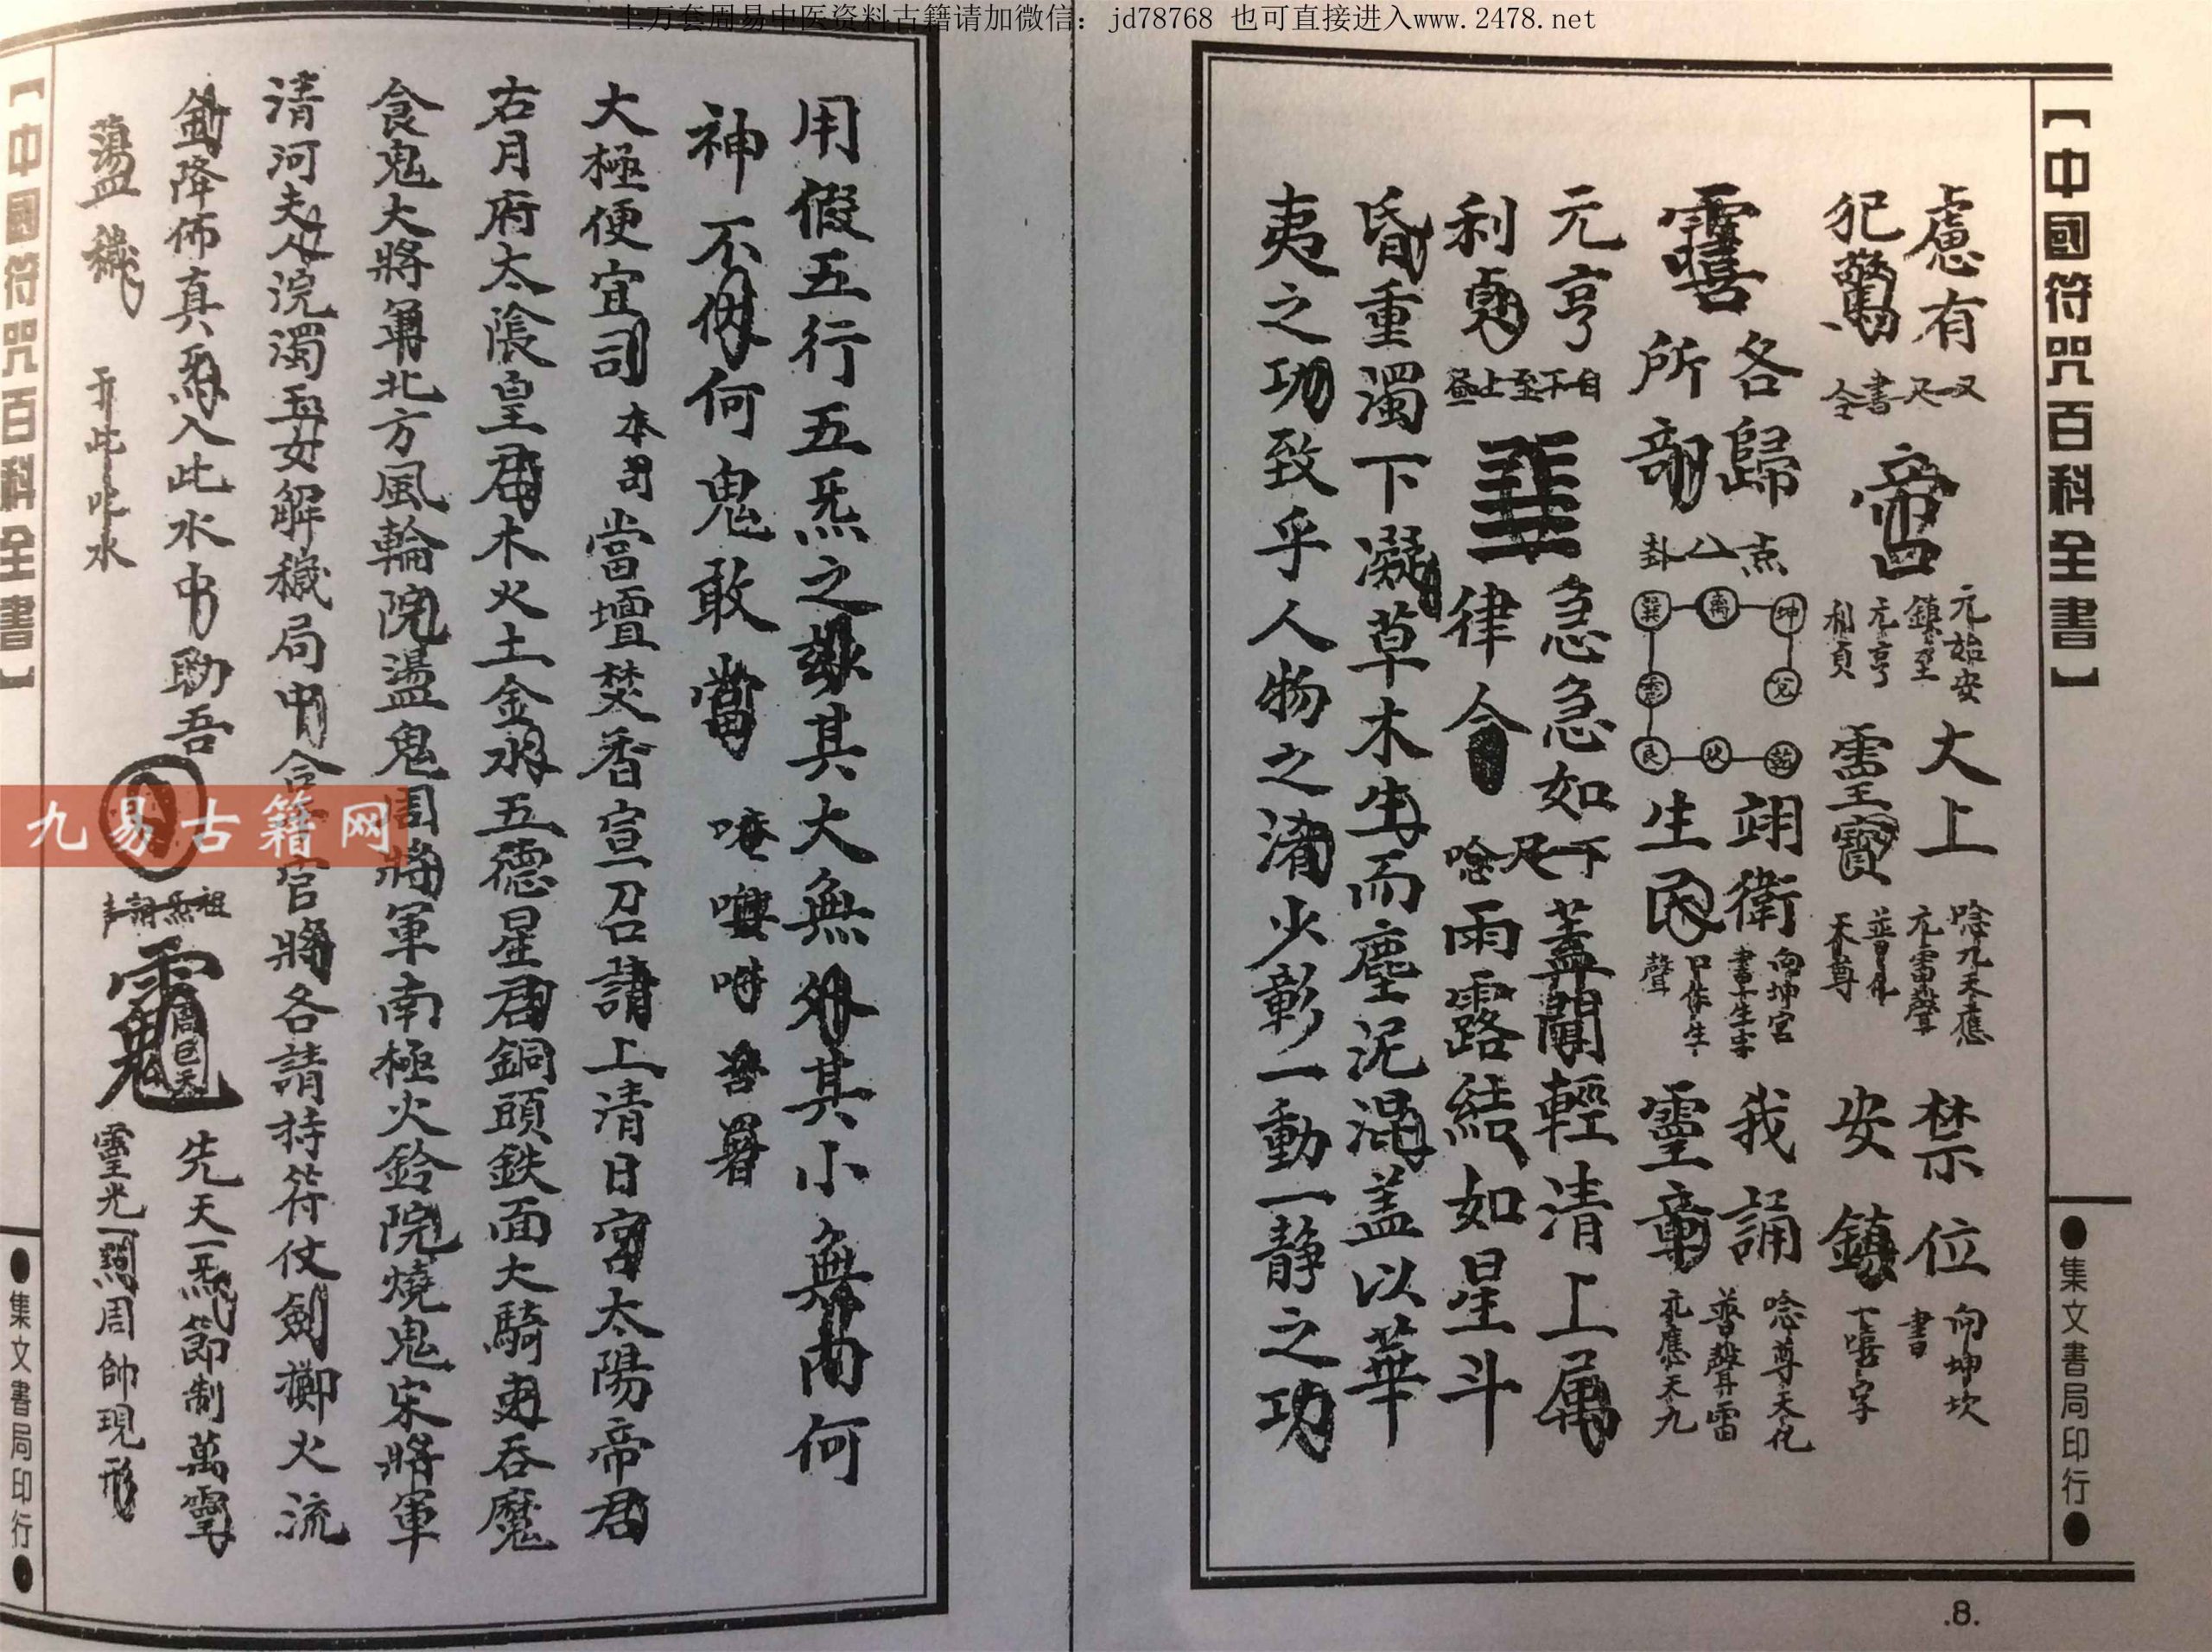 上万套周易中医资料古籍请加微信：jd78768 也可直接进入www.2478.net
【中國符咒百科全書】
●集文書局印行●
慮有
犯驚
又尺書全
元始安
鎮至
元亨
利貞
大上
靈寶
唸九天應
元雷聲
普化
天尊
禁位
安鎮
向坤坎
書
下嘻字
各歸
所部
点八卦
坤
離
巽
兌
震
乾
坎
艮
翊衛
生民
向坤宮
書下生字
口作生
聲
我誦
靈章
唸尊天化
普聲雷
元應天九
元亨
利貞
自下至上
急急如
律令
下一尺唸
蓋聞輕清上属
雨露結如星斗
昏重濁下凝草木生而塵泥混盖以華
夷之功致乎人物之淆少彰一動一静之功
.8.
用假五行五炁之 其大無外其小無內何
神不伏何鬼敢當
大極便宜司
本司
當壇焚香宣召請上清日宮太陽帝君
右月府太陰皇君木火土金水五德星君銅頭鉄面大騎 吞魔
食鬼大將軍北方風輪院盪鬼周將軍南極火鈴院燒鬼宋將軍
清河夫人浣濁玉女解穢局中合 官將各請持符仗劍擲火流
金降佈真炁入此水中助吾
祖炁
周巨天
先天一炁節制萬靈
盪穢
于此水
靈光一照周帥現形
【中國符咒百科全書】
●集文書局印行●
九易古籍网